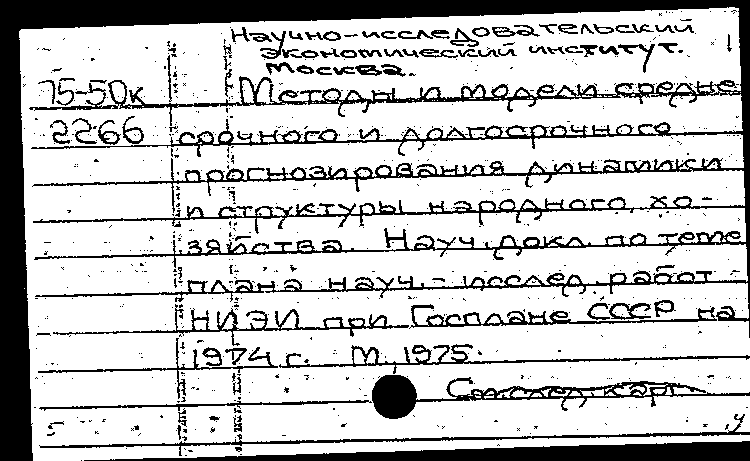 Научно-исследовательский
экономический институт.
Москва.
1
75-50к Методы и модели средне
2266 срочного и долгосрочного
прогнозирования динамики
и структуры народного хо-
зяйства. Науч. докл. по теме
плана науч.-исслед. работ
НИЭИ при Госплане СССР на
1974 г. М., 1975.
См. след. карт
5 у